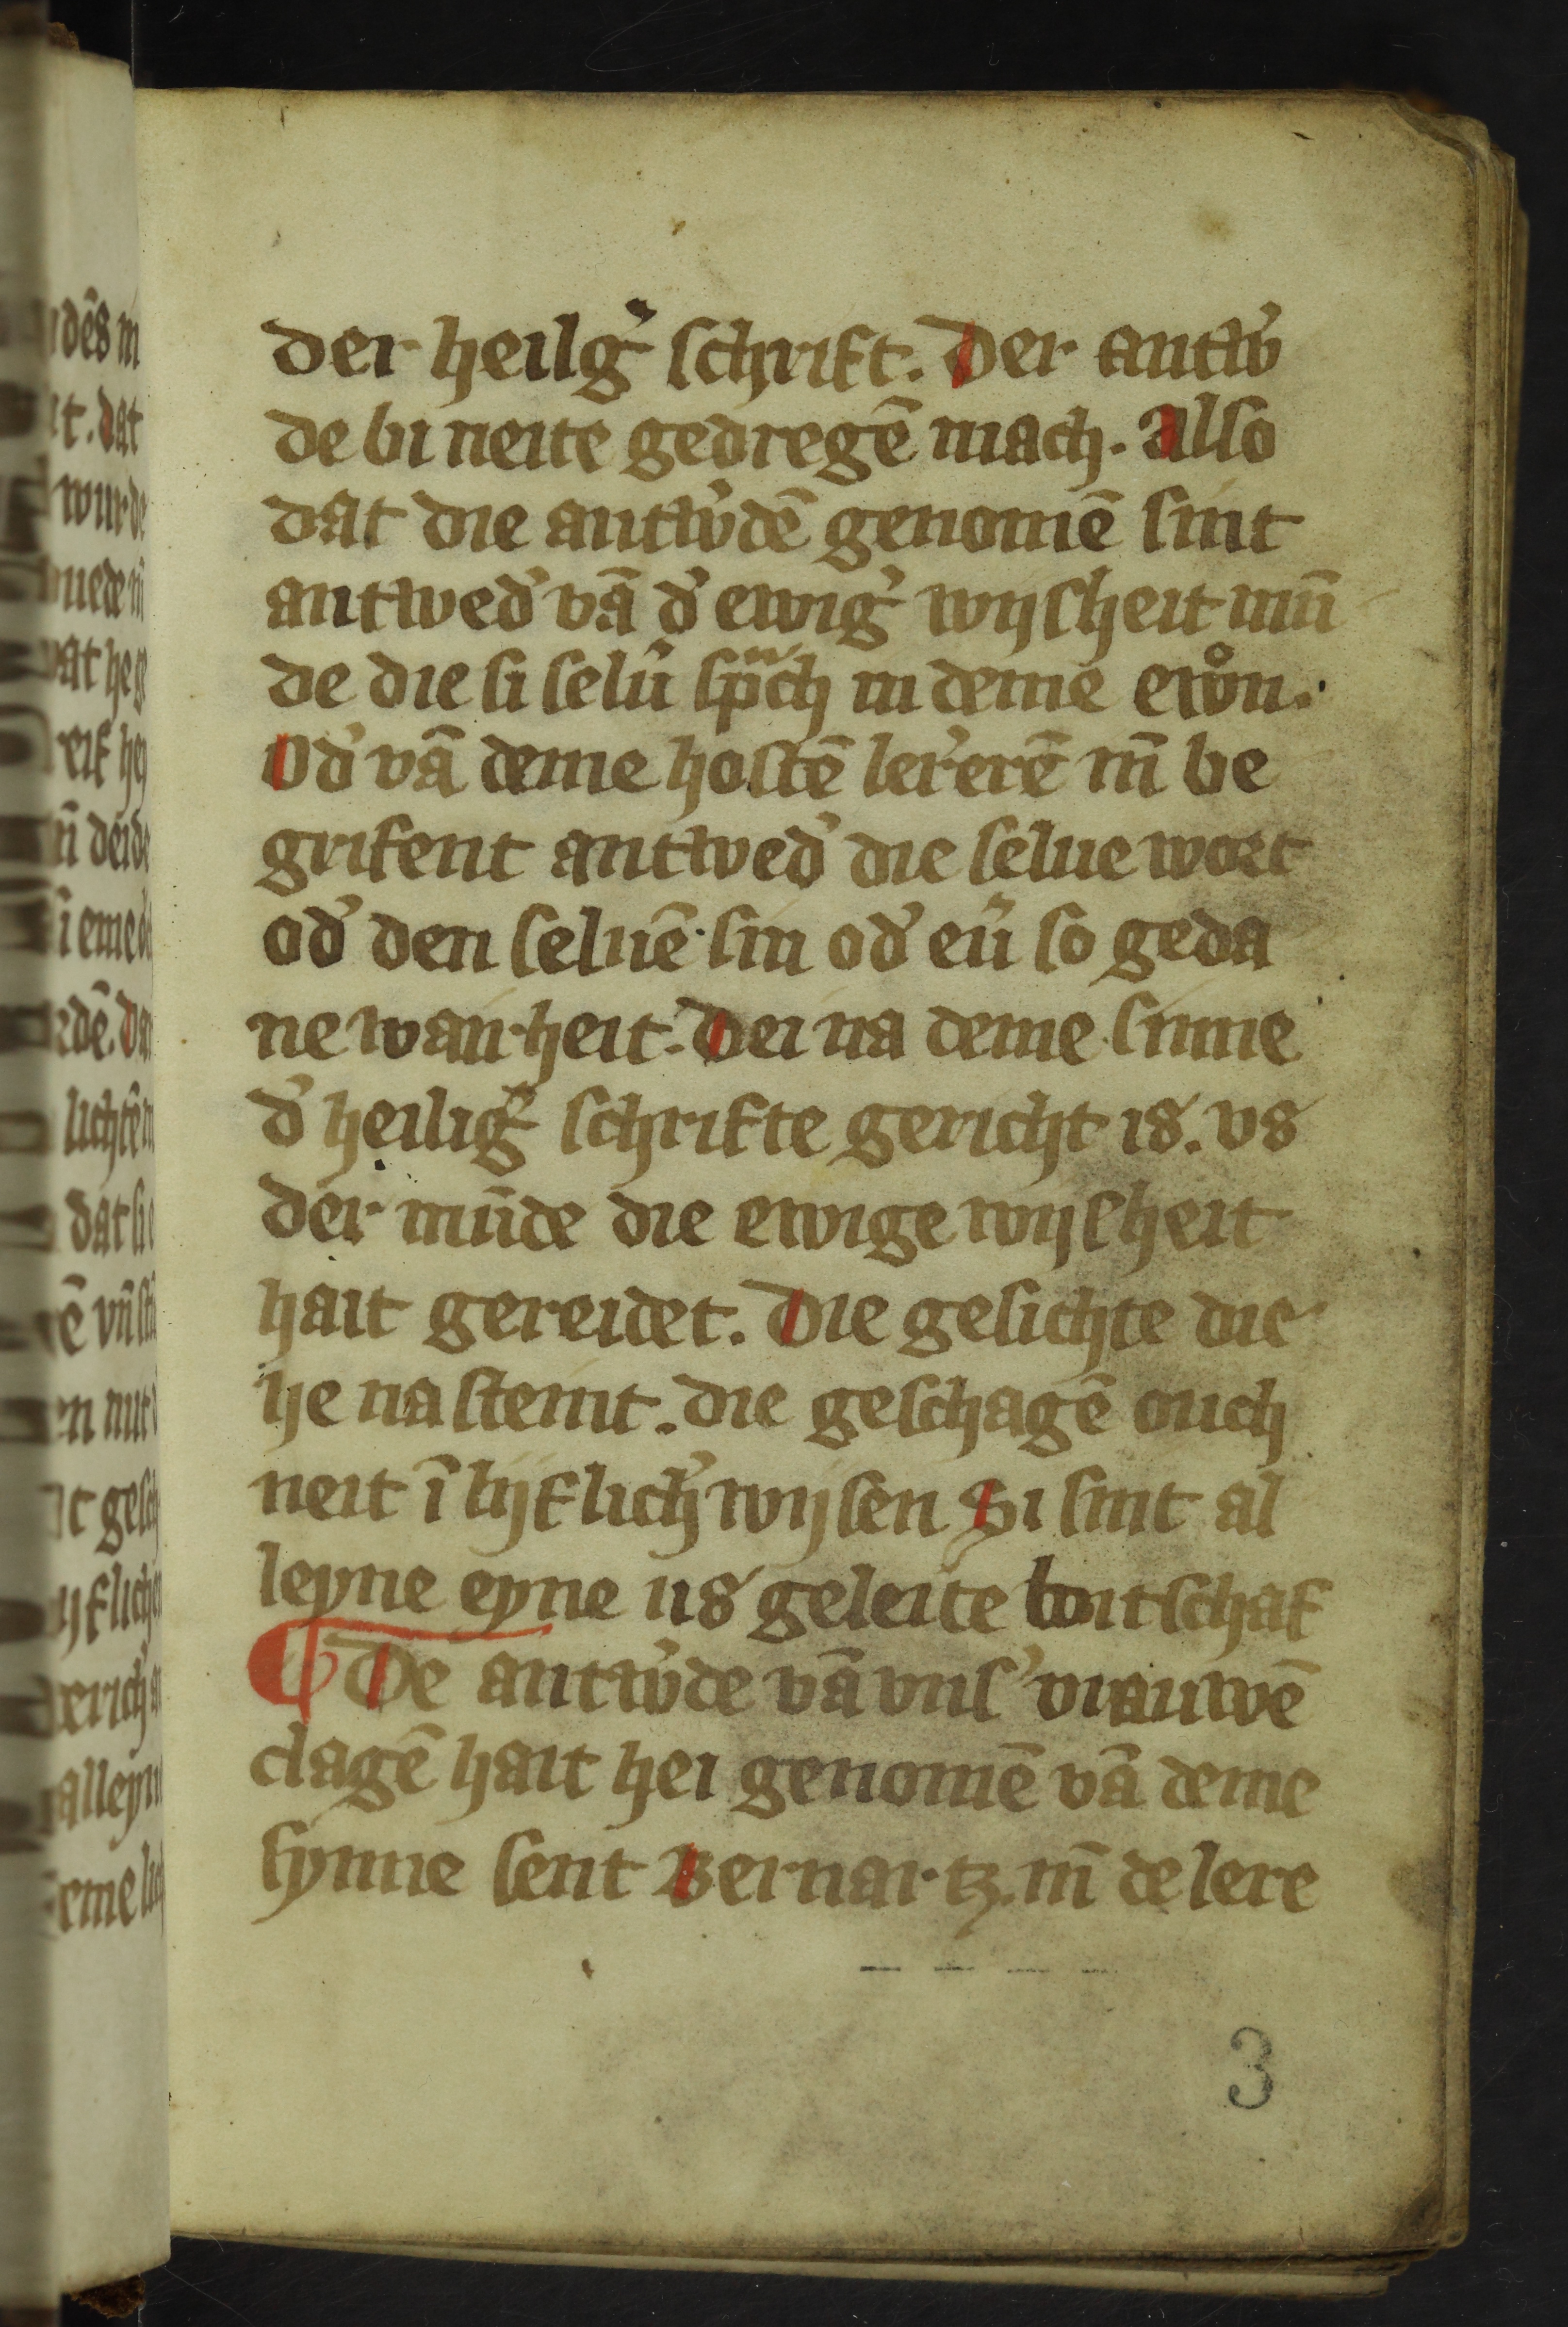 der heilg᾽ schrift. Der antw᾽
de bi neite gedregē mach. Also
dat die antw᾽dē genomē sint
antwed᾽ vā d᾽ ewig᾽ wijsheit mūn
de die si selu᾽ sp̄ch in deme ewͦn.
Od᾽ vā deme hostē ler᾽erē vn̄ be
grifent antwed᾽ die selue wort
od᾽ den seluē sin od᾽ eū so geda
ne warheit. Dei na deme sinne
d᾽ heilig᾽ schrifte gericht is. vs
der mūde die ewige wijsheit
hait gereidet. Die gesichte die
he na steint. die geschagē ouch
neit ī lijflich᾽ wijsen Si sint al
leyne eyne us geleite boitschaf
¶ De antw᾽de vā vns᾽ vrauwē
clagē hait hei genomē vā deme
synne sent Bernartz. vn̄ de lere
3